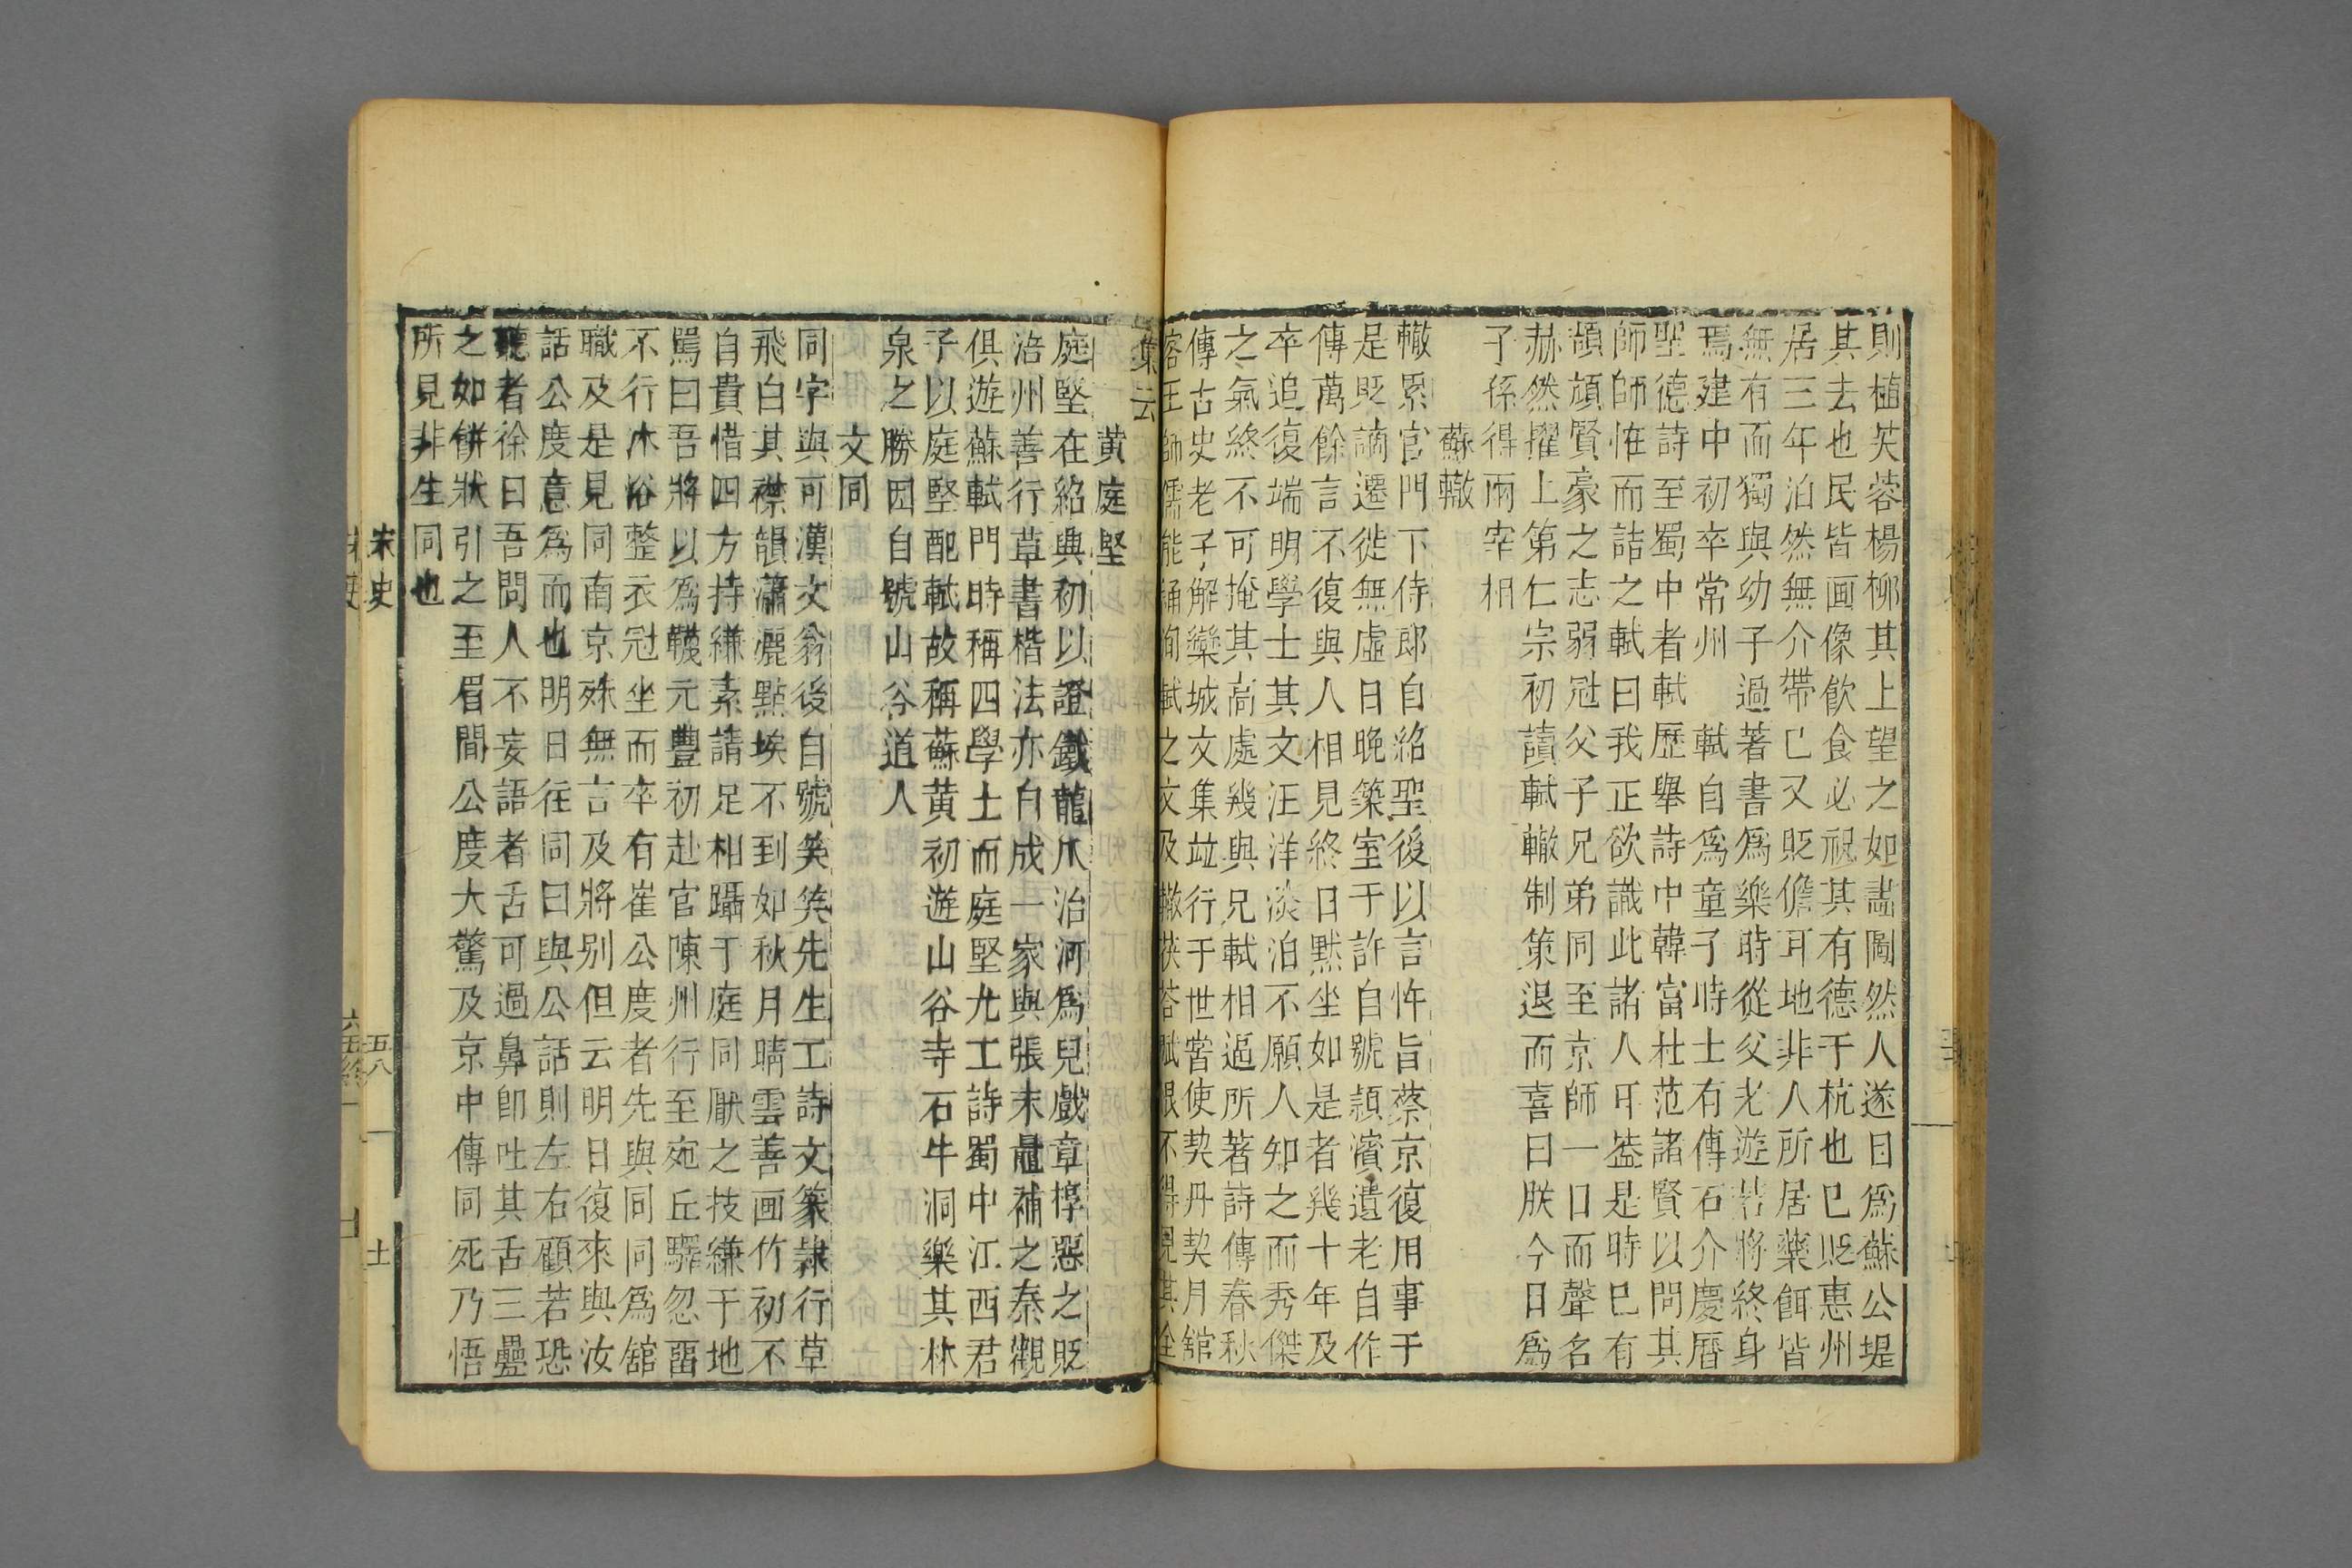 則植芙蓉楊柳其上望之如畫圖然人遂目爲蘇公堤
其去也民皆画像飲食必祝其有德于杭也已貶惠州
居三年泊然無介帶已又貶儋耳地非人所居藥餌皆
無有而獨與幼子過著書爲樂時從父老遊若將終身
焉建中初卒常州 軾自爲童子時士有傳石介慶曆
聖德詩至蜀中者軾歷舉詩中韓富杜范諸賢以問其
師師惟而詰之軾曰我正欲識此諸人耳盖是時已有
頡頏賢豪之志弱冠父子兄弟同至京師一日而聲名
赫然擢上第仁宗初讀軾轍制策退而喜曰朕今日爲
子孫得兩宰相
蘇轍
轍累官門下侍郎自紹聖後以言忤旨蔡京復用事于
是貶謫遷徙無虛日晚築室于許自號潁濱遺老自作
傳萬餘言不復與人相見終日黙坐如是者幾十年及
卒追復端明學士其文汪洋淡泊不願人知之而秀傑
之氣終不可掩其高處幾與兄軾相逼所著詩傳春秋
傳古史老子解欒城文集竝行于世嘗使契丹契丹舘
客王師儒能誦洵軾之文及轍茯苓賦恨不得見其全
集云
黃庭堅
庭堅在紹興初以證鐵龍爪治河爲兒戲章惇惡之貶
涪州善行草書楷法亦自成一家與張耒鼂補之秦觀
俱遊蘇軾門時稱四學士而庭堅尤工詩蜀中江西君
子以庭堅配軾故稱蘇黃初遊山谷寺石牛洞樂其林
泉之勝因自號山谷道人
文同
同字與可漢文翁後自號笑笑先生工詩文篆隸行草
飛白其襟韻瀟灑點埃不到如秋月晴雲善画竹初不
自貴惜四方持縑素請足相躡于庭同厭之技縑于地
罵曰吾將以爲韈元豐初赴官陳州行至宛丘驛忽畱
不行沐浴整衣冠坐而卒有崔公度者先與同同爲舘
職及是見同南京殊無言及將別但云明日復來與汝
話公度意爲而也明日往同曰與公話則左右顧若恐
聽者徐曰吾問人不妄語者舌可過鼻卽吐其舌三疊
之如餅狀引之至眉間公度大驚及京中傳同死乃悟
所見非生同也
宋史 五八 土